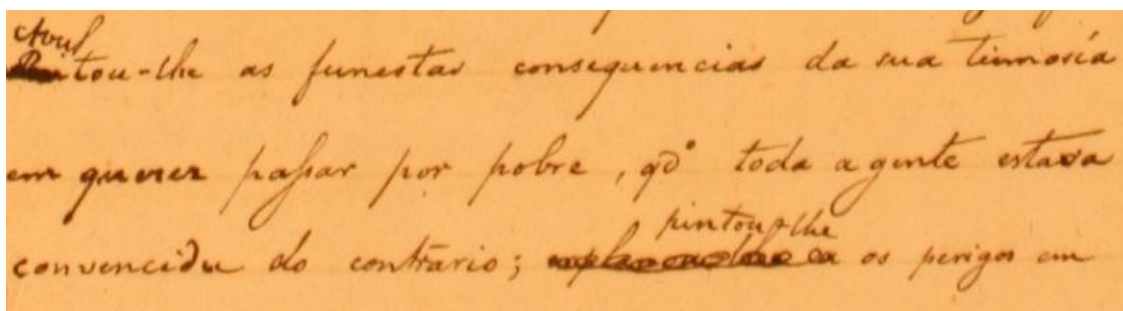 Avultou-lhe as funestas consequencias da sua teimosía
em querer paſsar por pobre, qdº toda a gente estava
convencida do contrário; pintou-lhe os perigos em